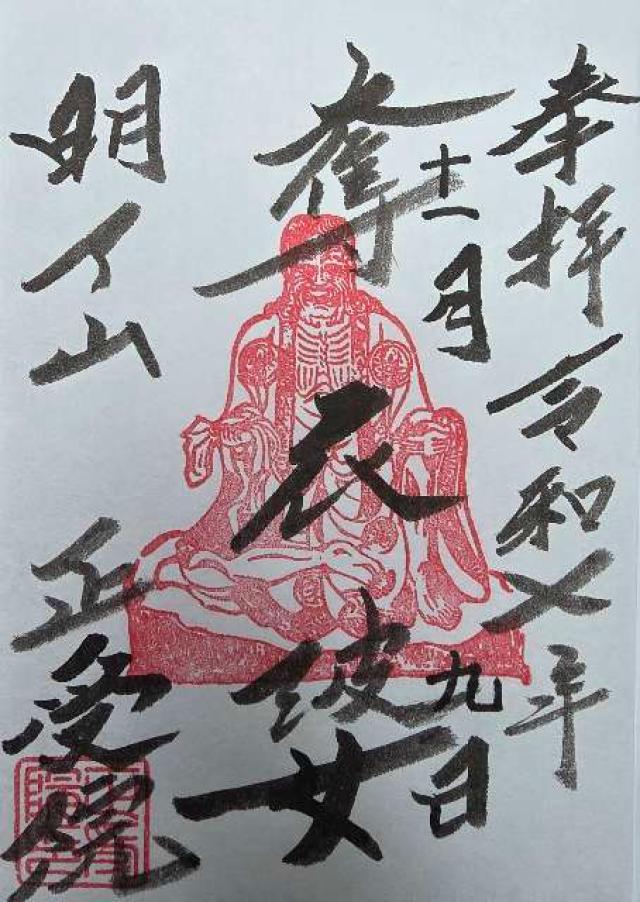 奉拝 令和七年
十一月九日
奪衣婆
明了山 正受院